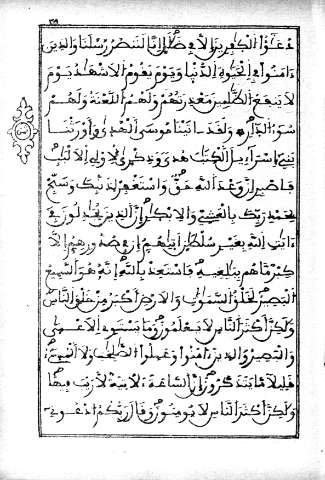 دعؤا الكفرين إلا في ضلل إنا لننصر رسلنا والذين
ءامنوا في الحيوة الدنيا ويوم يقوم الاشهد يوم
لا تنفع الظلمين معذرتهم ولهم اللعنة ولهم
سوء الدار ولقد ءاتينا موسى الهدى وأورثنا
بني إسراءيل الكتب هدى وذكرى لأولي الالبب
فاصبر إن وعد الله حق واستغفر لذنبك وسبح
بحمد ربك بالعشي والابكر إن الذين يجدلون في
ءايت الله بغير سلطن أتيهم إن في صدورهم إلا
كبر ما هم ببلغيه فاستعذ بالله إنه هو السميع
البصير لخلق السموت والارض أكبر من خلق الناس
ولكن أكثر الناس لا يعلمون وما يستوي الاعمى
والبصير والذين ءامنوا وعملوا الصلحت ولا المسيء
قليلا ما يتذكرون إن الساعة ءلاتية لا ريب فيها
ولكن أكثر الناس لا يومنون وقال ربكم ادعوني